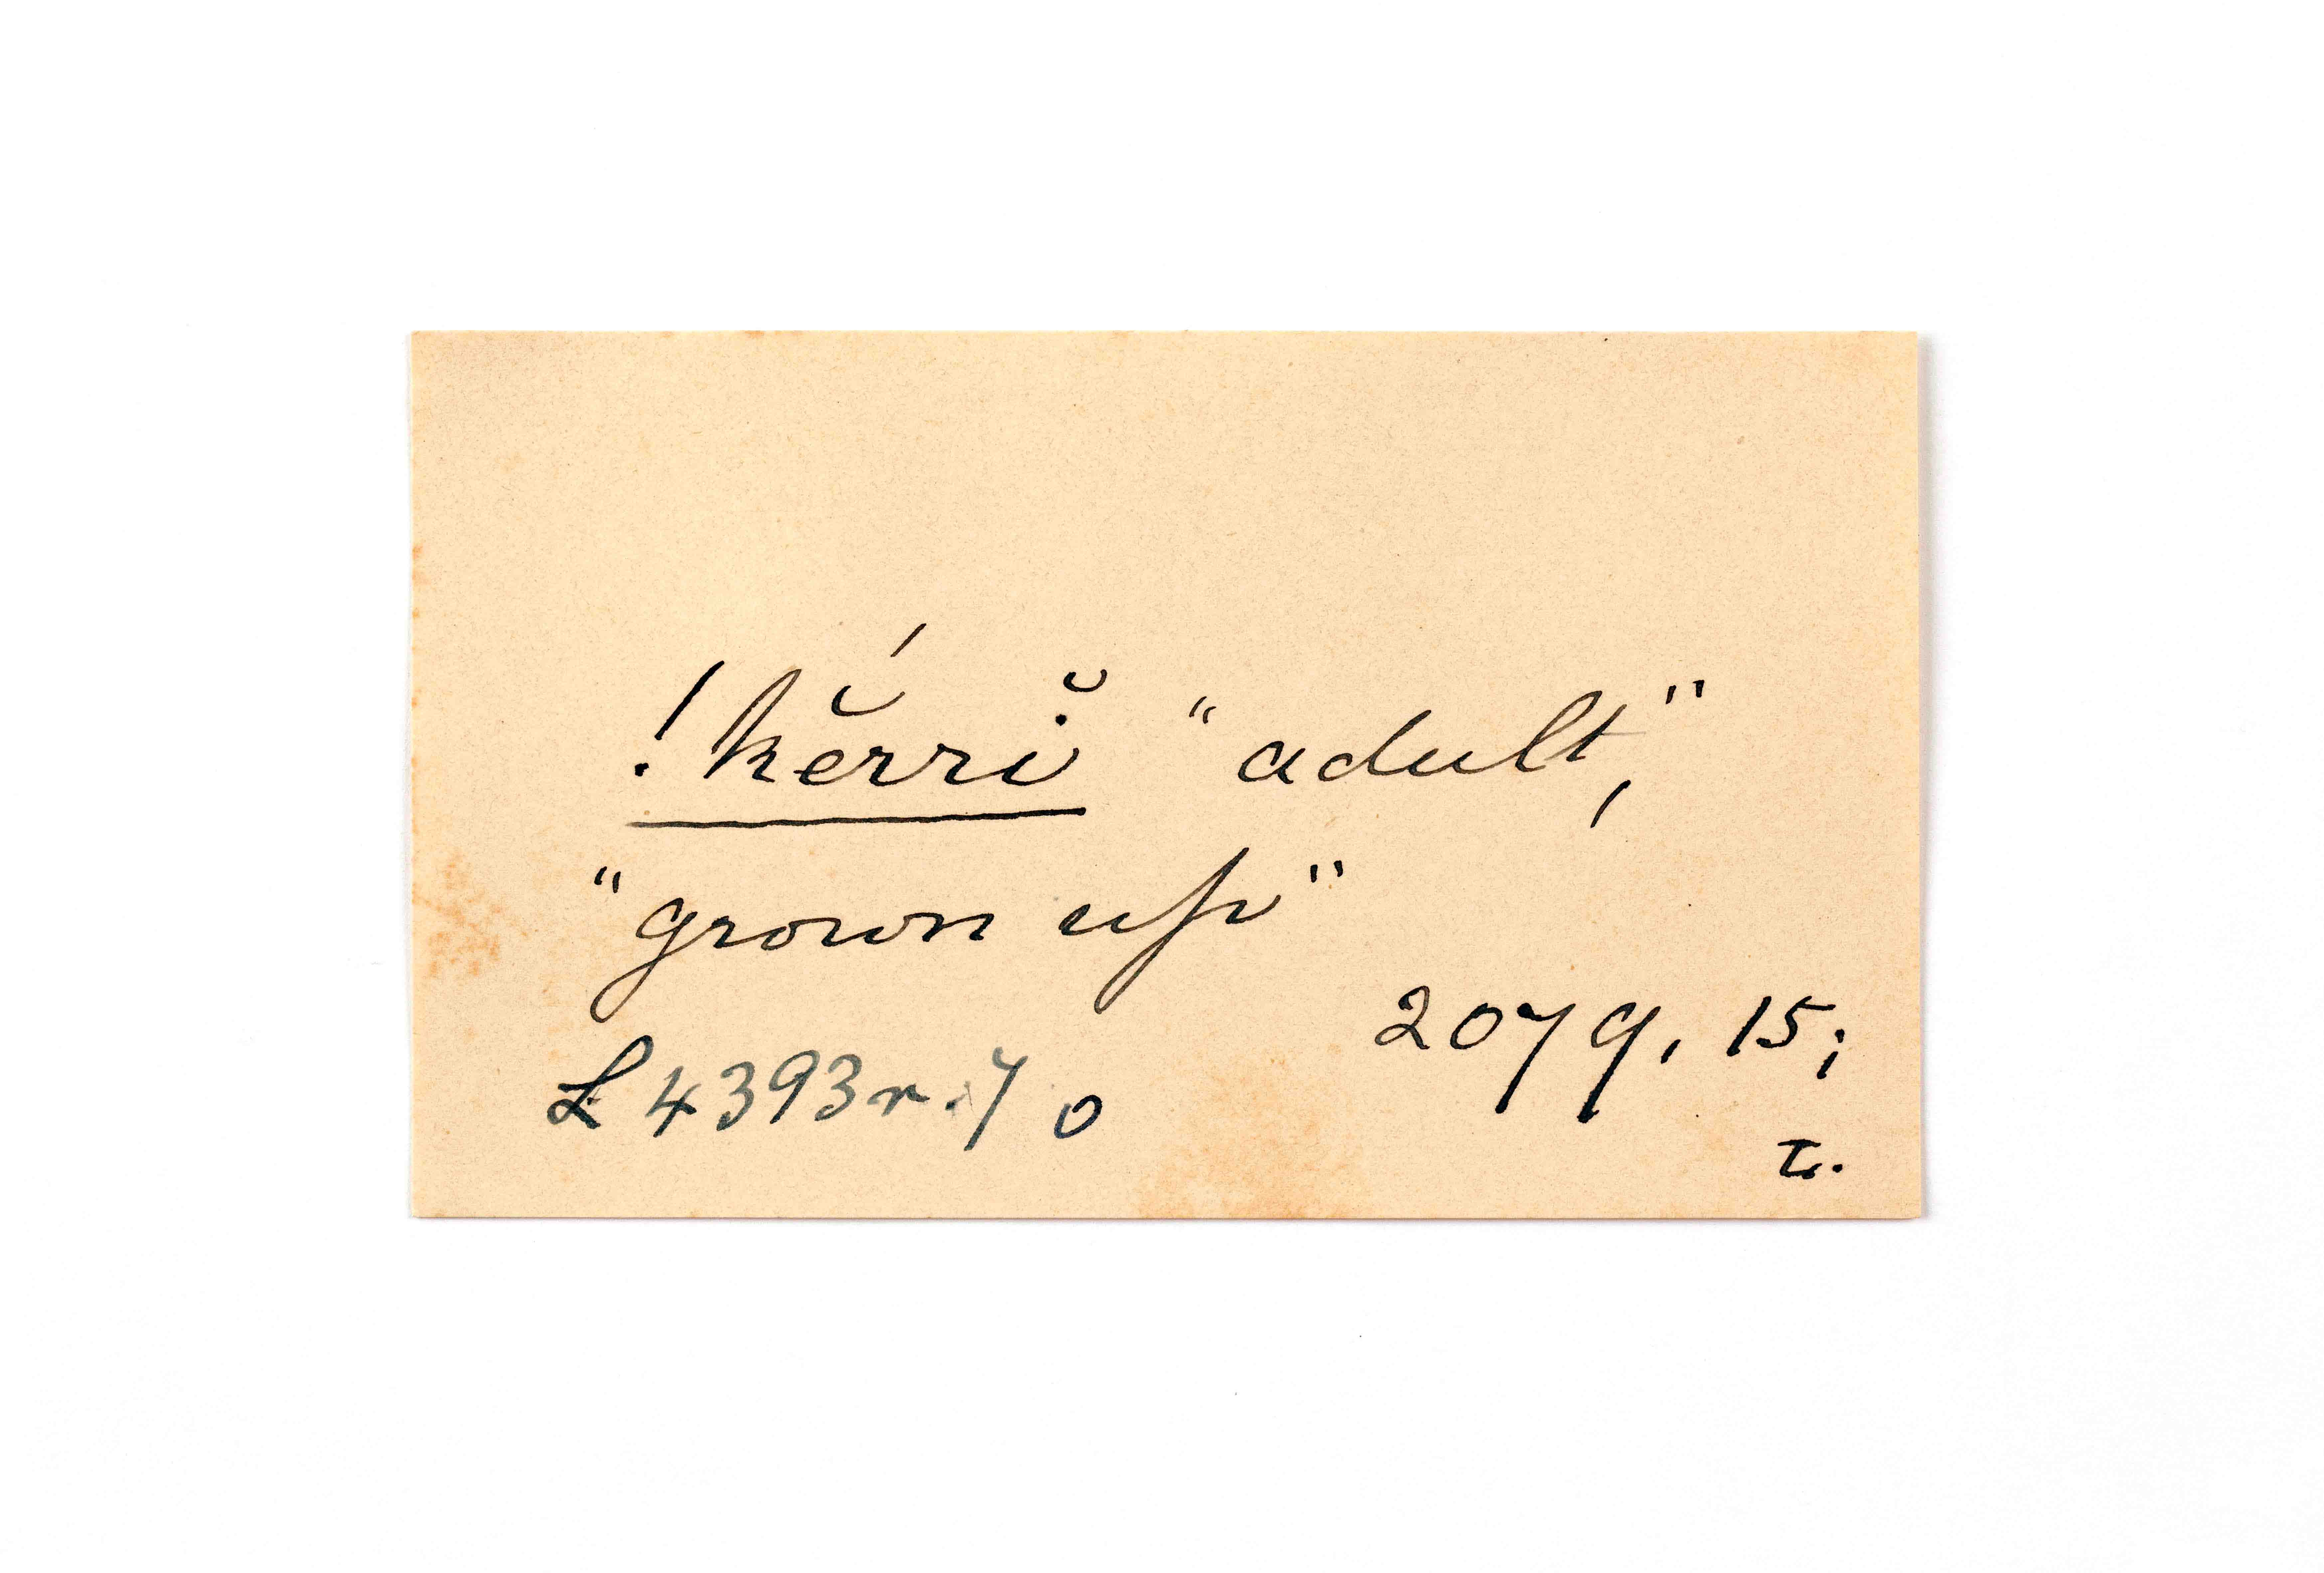 !kĕ́rrĭ "adult,"
"grown up"
2079, 15;
L 4393r. 7 o